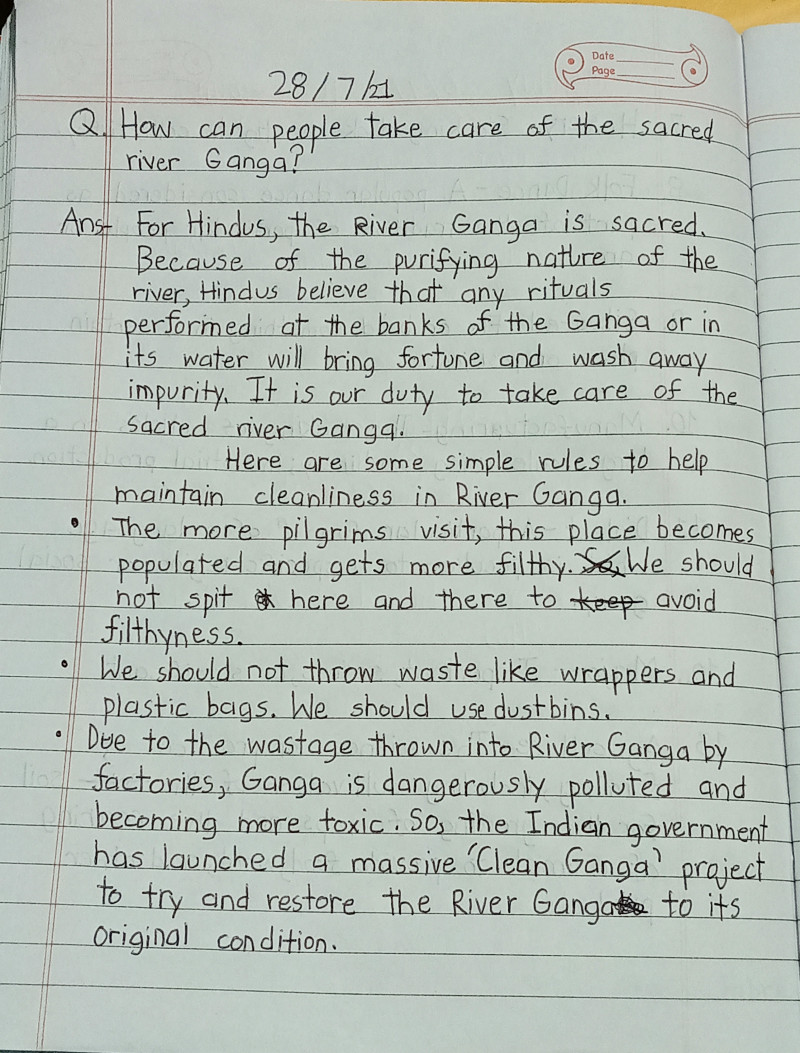 Date
Page
28/7/21
Q. How can people take care of the sacred
river Ganga?
Ans For Hindus, the River Ganga is sacred.
Because of the purifying nature of the
river, Hindus believe that any rituals
performed at the banks of the Ganga or in
its water will bring fortune and wash away
impurity. It is our duty to take care of the
sacred river Ganga.
Here are some simple rules to help
maintain cleanliness in River Ganga.
• The more pilgrims visit, this place becomes
populated and gets more filthy. So, We should
not spit here and there to keep avoid
filthyness.
• We should not throw waste like wrappers and
plastic bags. We should use dustbins.
• Due to the wastage thrown into River Ganga by
factories, Ganga is dangerously polluted and
becoming more toxic. So, the Indian government
has launched a massive 'Clean Ganga' project
to try and restore the River Ganga to its
original condition.